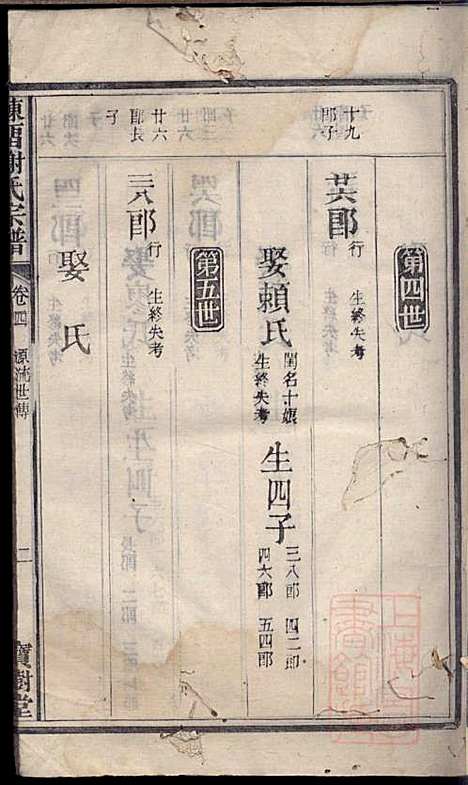 第四世
十九郎子
廿六郎 行 生終失考
娶賴氏 閨名十娘 生終失考 生四子 三八郎 四二郎 四六郎 五四郎
第五世
廿六郎長子
三八郎 行 生終失考
娶 氏
謝氏宗譜 卷四 源流世傳 二 寶樹堂